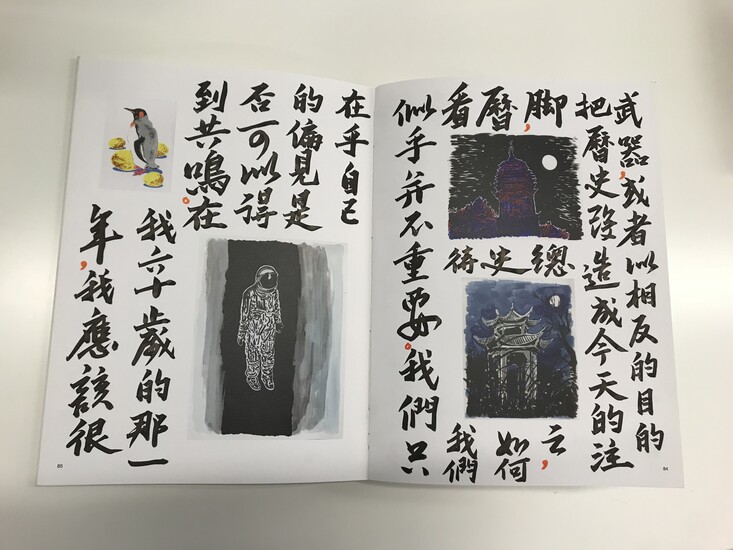 武器,或者以相反的目的
把曆史改造成今天的注
脚,總之,
曆史如何
看待我們
似乎并不重要。我們只
84
在乎自己
的偏見是
否可以得
到共鳴。在
我六十歲的那一
年,我應該很
85